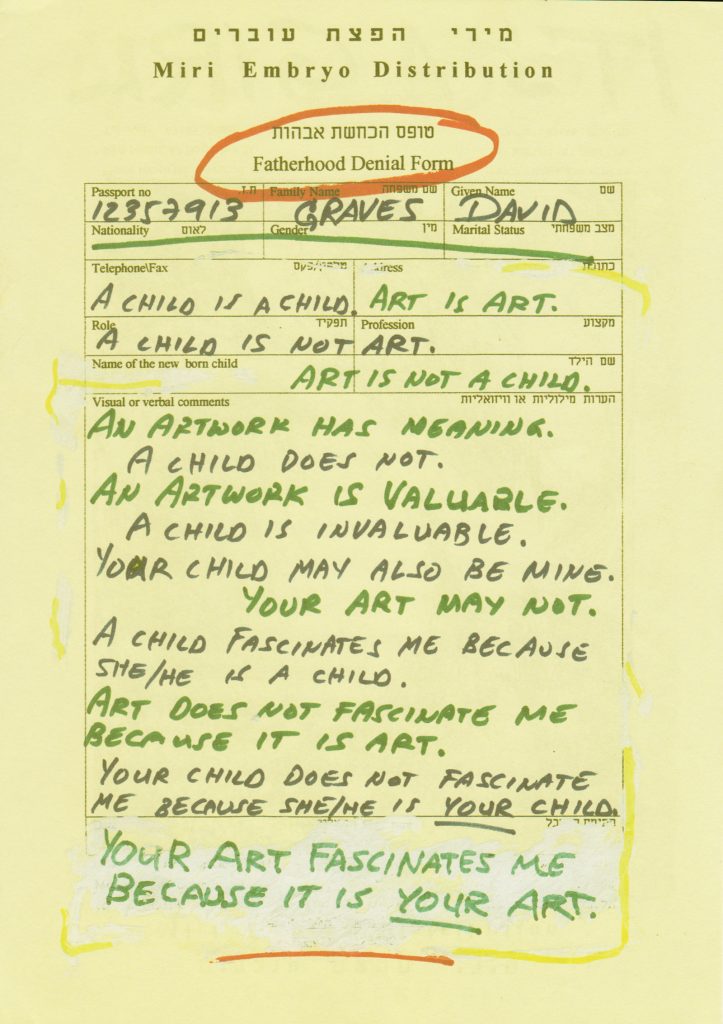 מירי הפצת עוברים
Miri Embryo Distribution
טופס הכחשת אבהות
Fatherhood Denial Form
Passport no מ.ז. Family Name שם משפחה Given Name שם
12357913 GRAVES DAVID
Nationality לאום Gender מין Marital Status מצב משפחתי
Telephone\Fax טלפון/פקס Address כתובת
A CHILD IS A CHILD. ART IS ART.
Role תפקיד Profession מקצוע
A CHILD IS NOT ART.
Name of the new born child שם הילד
ART IS NOT A CHILD.
Visual or verbal comments הערות מילוליות או וויזואליות
AN ARTWORK HAS MEANING.
A CHILD DOES NOT.
AN ARTWORK IS VALUABLE.
A CHILD IS INVALUABLE.
YOUR CHILD MAY ALSO BE MINE.
YOUR ART MAY NOT.
A CHILD FASCINATES ME BECAUSE
SHE/HE IS A CHILD.
ART DOES NOT FASCINATE ME
BECAUSE IT IS ART.
YOUR CHILD DOES NOT FASCINATE
ME BECAUSE SHE/HE IS YOUR CHILD.
YOUR ART FASCINATES ME
BECAUSE IT IS YOUR ART.